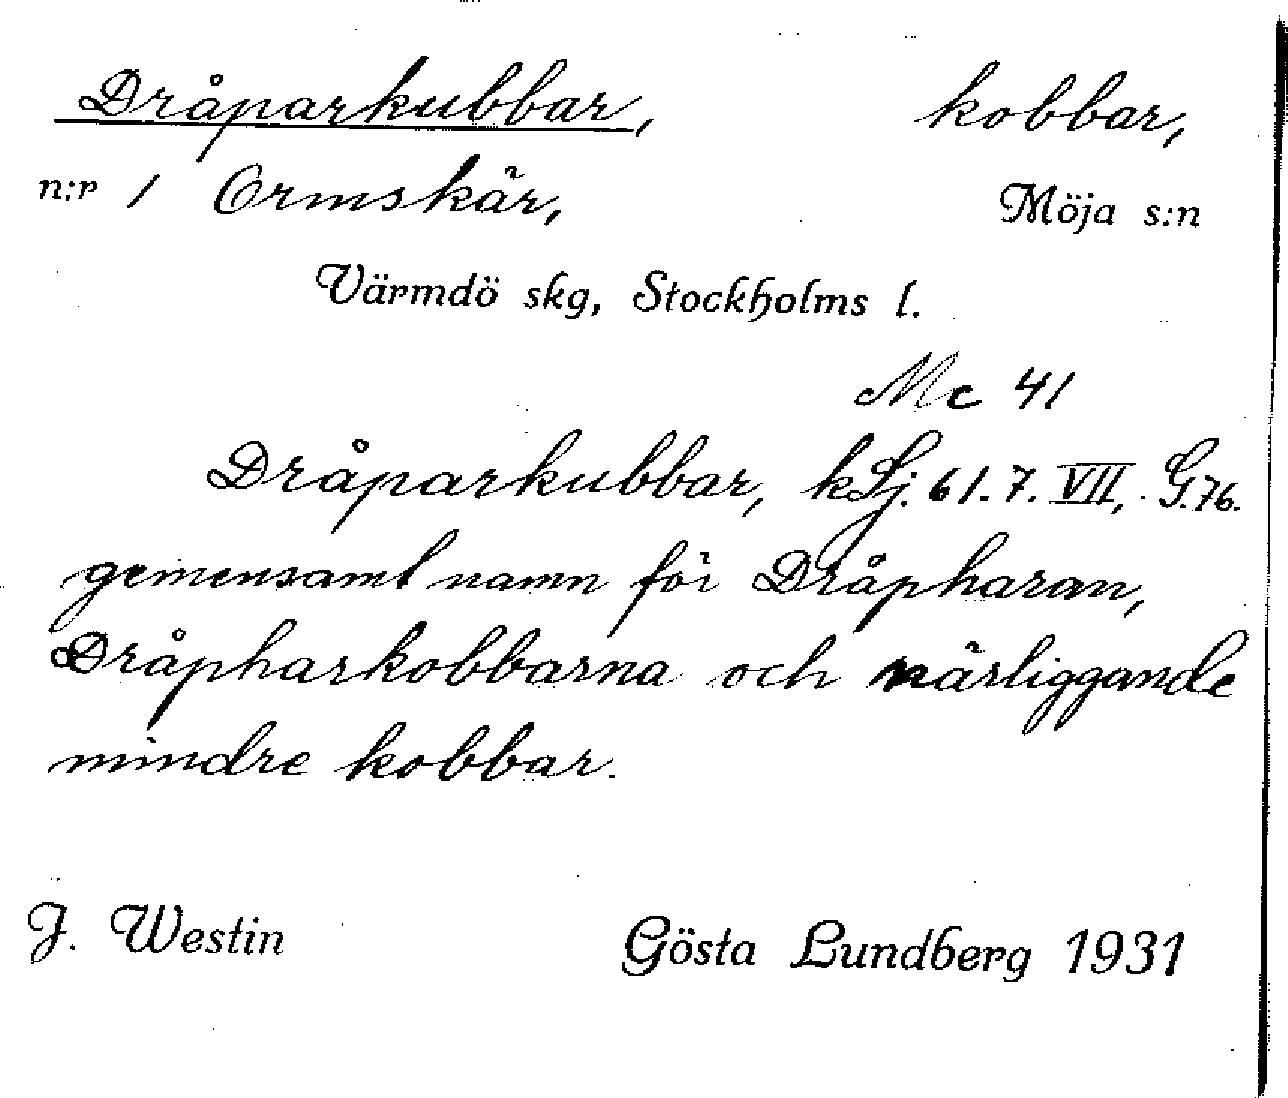 Dråparkubbar, kobbar,
n:r 1 Ormskär, Möja s:n
Värmdö skg, Stockholms l.
Mc 41
Dråparkubbar, kSj. 61.7. VII, G.76.
gemensamt namn för Dråpharan,
Dråpharkobbarna och närliggande
mindre kobbar.
J. Westin Gösta Lundberg 1931